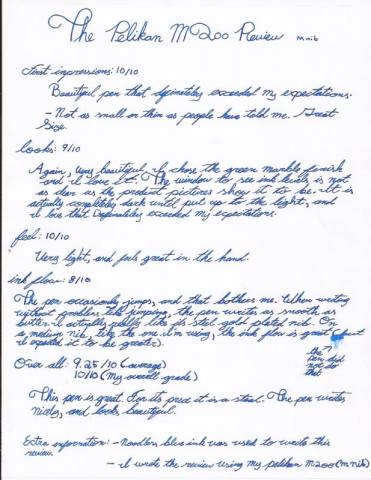 The Pelikan M200 Review M nib
First impressions: 10/10
Beautiful pen that definately exceeded my expectations.
- Not as small or thin as people have told me. Great
Size.
looks: 9/10
Again, very beautiful. I chose the green marble finish
and I love it. The window to see ink levels is not
as clear as the product pictures show it to be. It is
actually completely dark until put up to the light, and
I love that. Definately exceeded my expectations.
feel: 10/10
Very light, and feels great in the hand.
ink flow: 8/10
The pen occasionly jumps, and that bothers me. When writing
without problems like jumping, the pen writes as smooth as
butter. I actually like its steel gold plated nib. On
a medium nib, like the one I'm using, the ink flow is great (but
I expected it to be greater).
the?
pen did
not do
that
Over all: 9.25/10 (average)
10/10 (My overall grade)
This pen is great. For its price it is a steal. The pen writes
nicely, and looks beautiful.
Extra information: - Noodlers blue ink was used to write this
review.
- I wrote the review using my pelikan M200 (m nib)